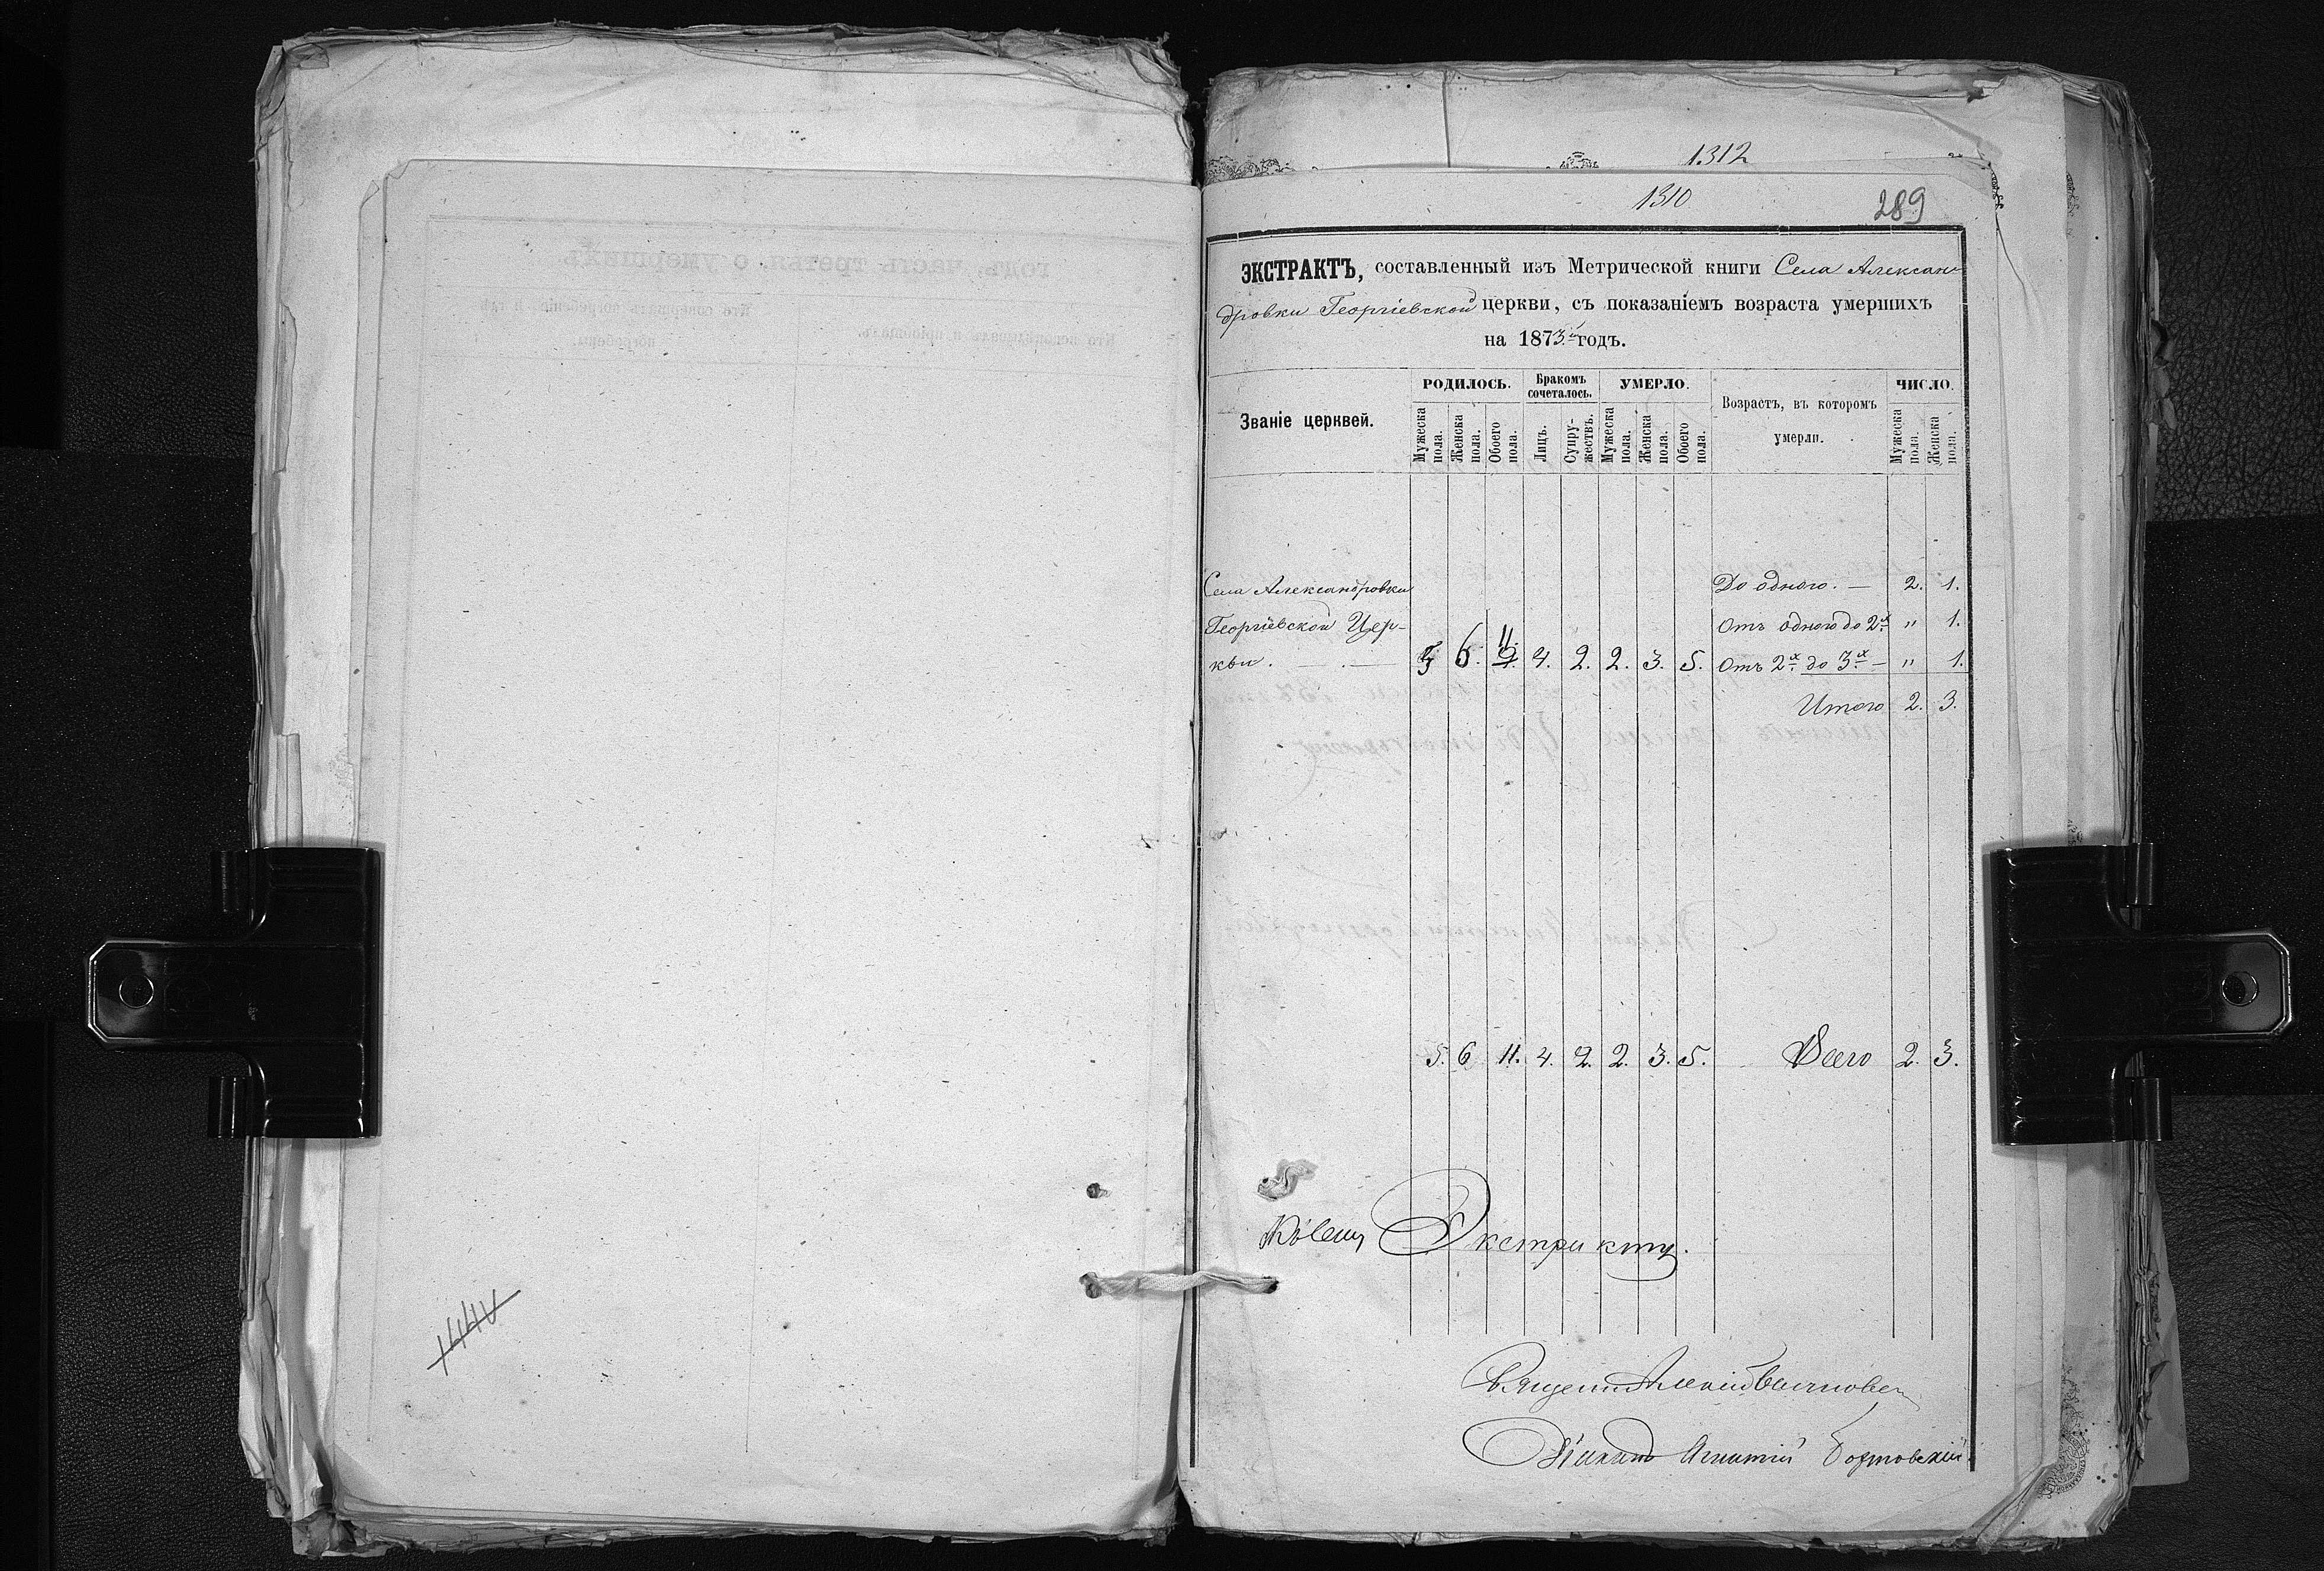 1312
1310
289
ЭКСТРАКТЪ, составленный изъ Метрической книги Села Алексан-
дровки Георгіевской церкви, съ показаніемъ возраста умершихъ
на 1873й годъ.
Званіе церквей.
РОДИЛОСЬ.
Мужеска пола.
Женска пола.
Обоего пола.
Бракомъ сочеталось.
Лицъ.
Супружествъ.
УМЕРЛО.
Мужеска пола.
Женска пола.
Обоего пола.
Возрастъ, въ которомъ
умерли.
ЧИСЛО.
Мужеска пола.
Женска пола.
Села Александровки До одного. — 2. 1.
Георгіевской Цер- Отъ одного до 2х " 1.
кви. — 5 6. 11. 4. 2. 2. 3. 5. Отъ 2х до 3х — " 1.
Итого 2. 3.
5. 6 11. 4. 2. 2. 3. 5. Всего 2. 3.
Къ сему Экстракту.
Алексій
Діаконъ Игнатій
годъ, часть третья, о умершихъ.
Кто исповѣдывалъ и пріобщалъ.
Кто совершалъ погребеніе и гдѣ
погребены.